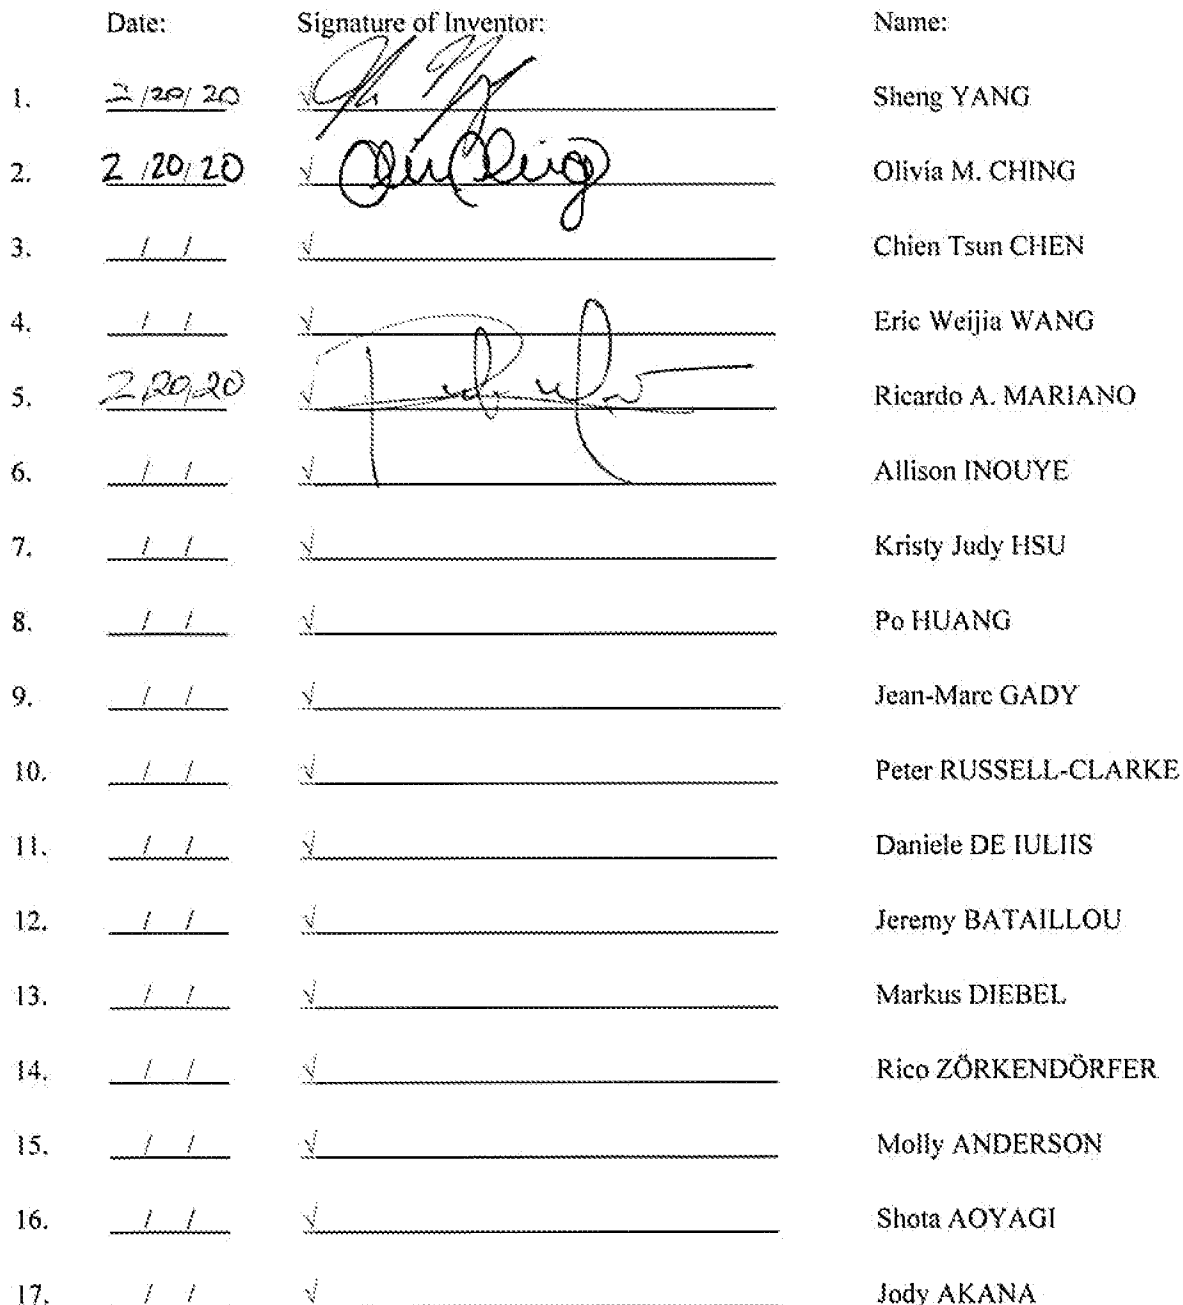 Date: Signature of Inventor: Name:
1. 2/20/20 √ Sheng YANG
2. 2/20/20 √ Olivia M. CHING
3. / / √ Chien Tsun CHEN
4. / / √ Eric Weijia WANG
5. 2/20/20 √ Ricardo A. MARIANO
6. / / √ Allison INOUYE
7. / / √ Kristy Judy HSU
8. / / √ Po HUANG
9. / / √ Jean-Marc GADY
10. / / √ Peter RUSSELL-CLARKE
11. / / √ Daniele DE IULIIS
12. / / √ Jeremy BATAILLOU
13. / / √ Markus DIEBEL
14. / / √ Rico ZÖRKENDÖRFER
15. / / √ Molly ANDERSON
16. / / √ Shota AOYAGI
17. / / √ Jody AKANA